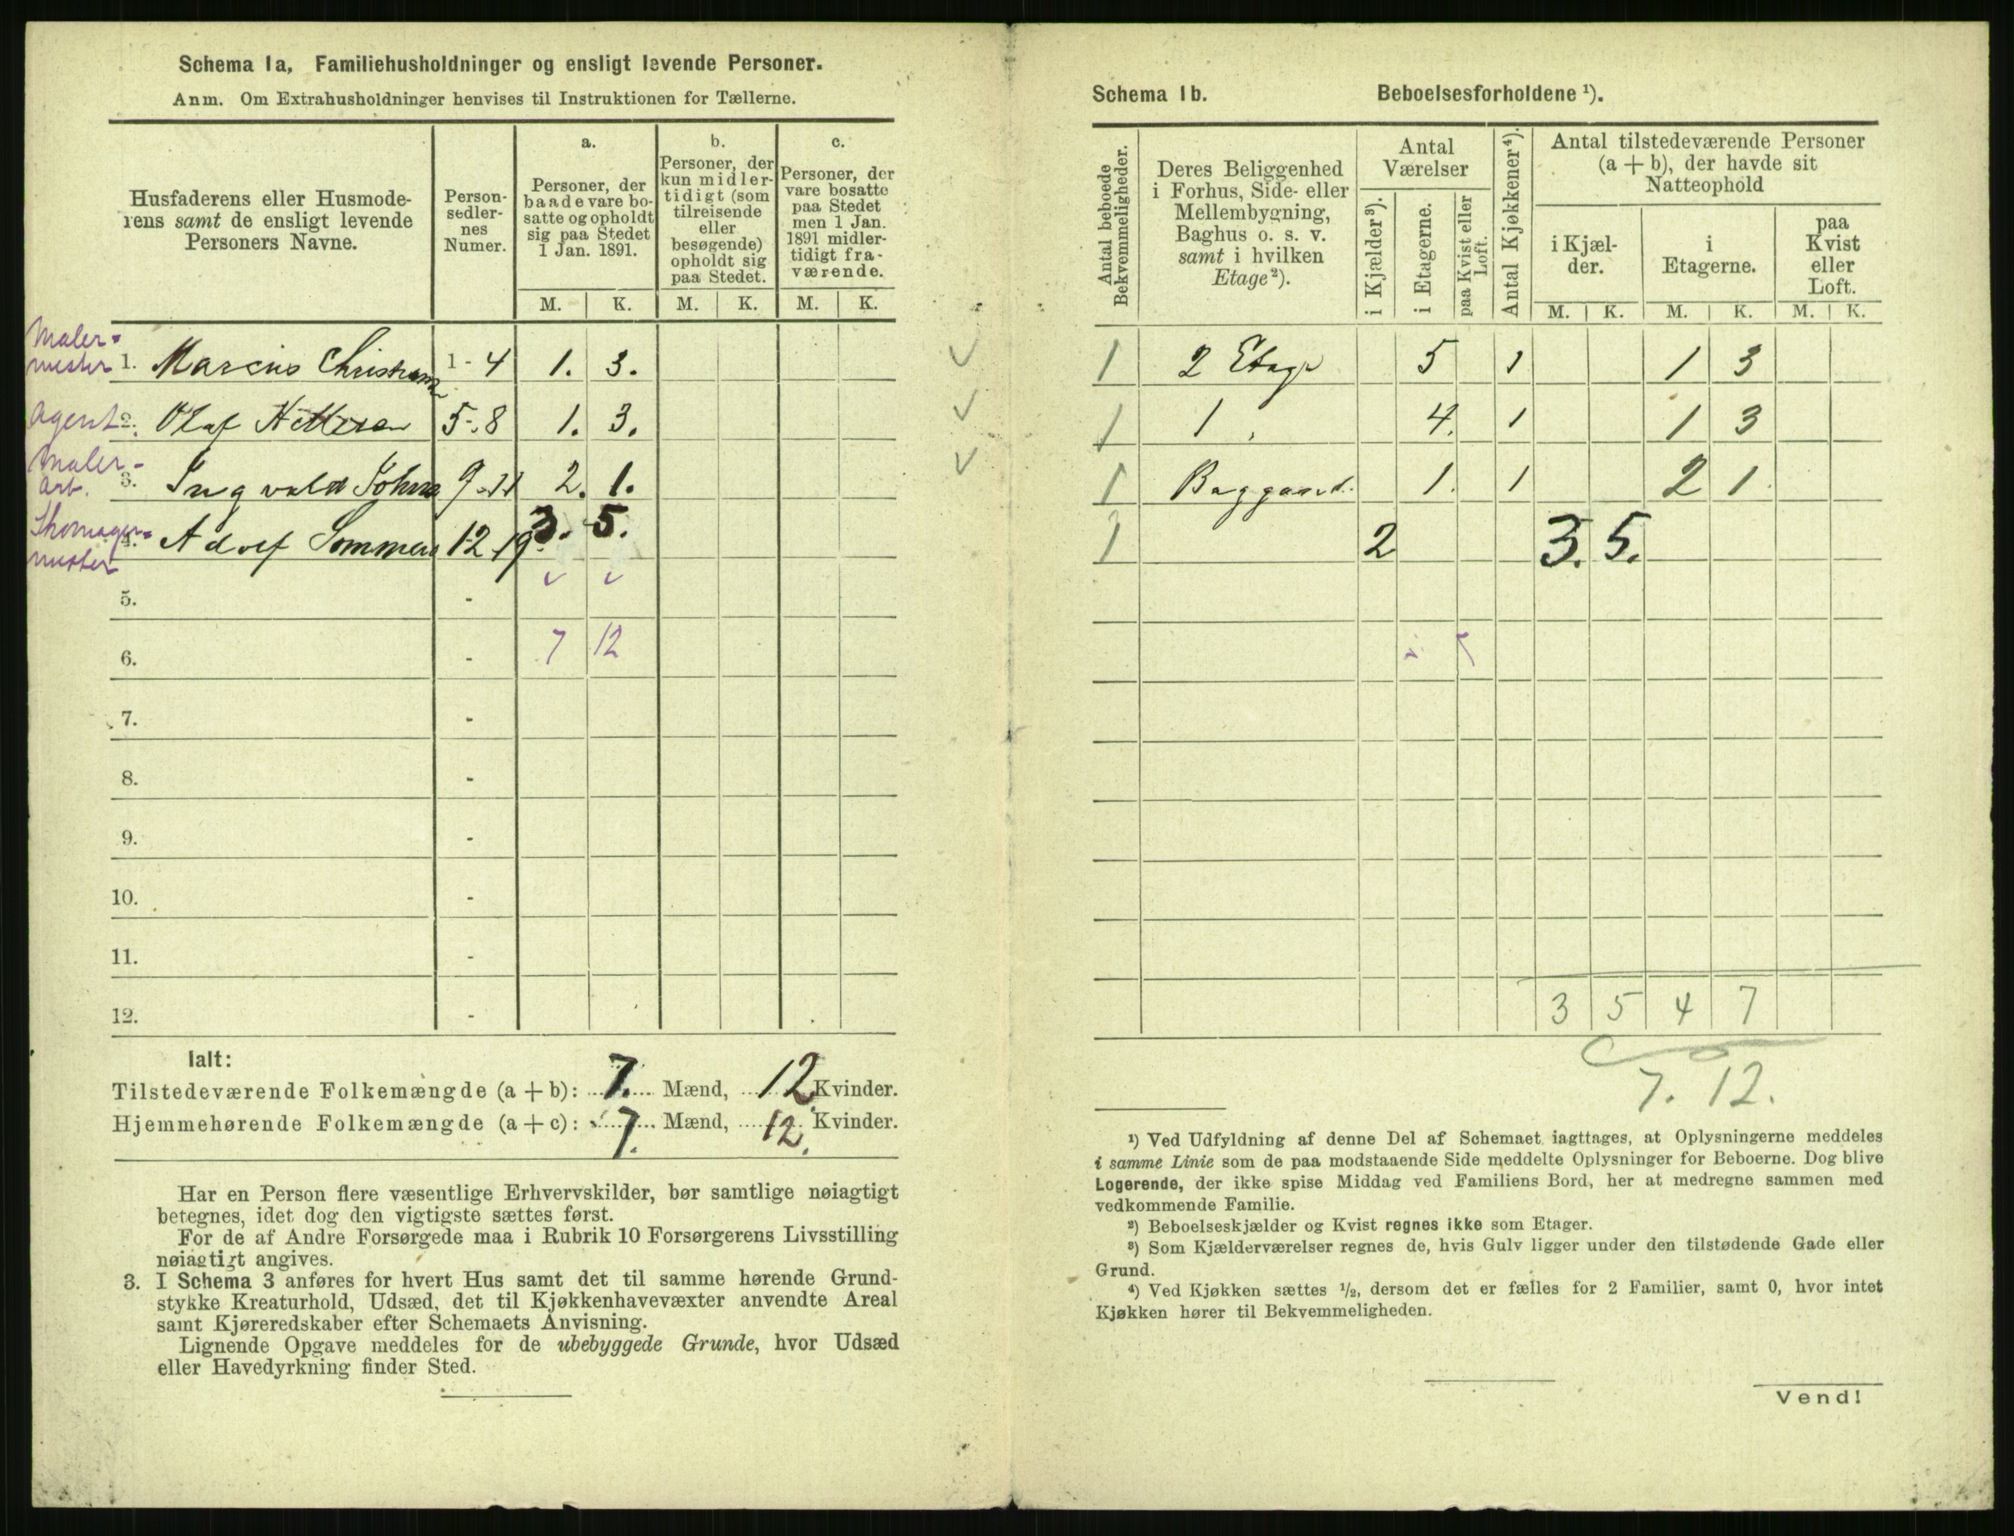 Schema 1a, Familiehusholdninger og ensligt levende Personer.
Anm. Om Extrahusholdninger henvises til Instruktionen for Tællerne.
Husfaderens eller Husmode-
rens samt de ensligt levende
Personers Navne.
Person-
sedler-
nes
Numer.
a.
Personer, der
baade vare bo-
satte og opholdt
sig paa Stedet
1 Jan. 1891.
b.
Personer, der
kun midler-
tidigt (som
tilreisende
eller
besøgende)
opholdt sig
paa Stedet.
c.
Personer, der
vare bosatte
paa Stedet
men 1 Jan.
1891 midler-
tidigt fra-
værende.
M. K. M. K. M. K.
Maler-
mester 1. Marcus Christensen 1 - 4 1. 3.
Agent 2. Olaf 5-8 1. 3.
Maler-
arb. 3. Ingvald Johns 9-11 2. 1.
4. Adolf Sommer 12-19 3. 5.
mester
5. -
6. - 7 12
7. -
8. -
9. -
10. -
11. -
12. -
Ialt:
Tilstedeværende Folkemængde (a + b): 7. Mænd, 12 Kvinder.
Hjemmehørende Folkemængde (a + c): 7. Mænd, 12. Kvinder.
Har en Person flere væsentlige Erhvervskilder, bør samtlige nøiagtigt
betegnes, idet dog den vigtigste sættes først.
For de af Andre Forsørgede maa i Rubrik 10 Forsørgerens Livsstilling
nøiagtigt angives.
3. I Schema 3 anføres for hvert Hus samt det til samme hørende Grund-
stykke Kreaturhold, Udsæd, det til Kjøkkenhavevæxter anvendte Areal
samt Kjøreredskaber efter Schemaets Anvisning.
Lignende Opgave meddeles for de ubebyggede Grunde, hvor Udsæd
eller Havedyrkning finder Sted.
Schema 1b. Beboelsesforholdene ¹).
Antal beboede
Bekvemmeligheder.
Deres Beliggenhed
i Forhus, Side- eller
Mellembygning,
Baghus o. s. v.
samt i hvilken
Etage ²).
Antal
Værelser
i Kjælder ³).
i Etagerne.
paa Kvist eller
Loft.
Antal Kjøkkener ⁴).
Antal tilstedeværende Personer
(a + b), der havde sit
Natteophold
i Kjæl-
der.
i
Etagerne.
paa
Kvist
eller
Loft.
M. K. M. K. M. K.
1 2 Etage 5 1 1 3
1 1 4. 1 1 3
1 Baggaard. 1. 1 2 1
1 2 3. 5.
3 5 4 7
7. 12.
¹) Ved Udfyldning af denne Del af Schemaet iagttages, at Oplysningerne meddeles
i samme Linie som de paa modstaaende Side meddelte Oplysninger for Beboerne. Dog blive
Logerende, der ikke spise Middag ved Familiens Bord, her at medregne sammen med
vedkommende Familie.
²) Beboelseskjælder og Kvist regnes ikke som Etager.
³) Som Kjælderværelser regnes de, hvis Gulv ligger under den tilstødende Gade eller
Grund.
⁴) Ved Kjøkken sættes ½, dersom det er fælles for 2 Familier, samt 0, hvor intet
Kjøkken hører til Bekvemmeligheden.
Vend!